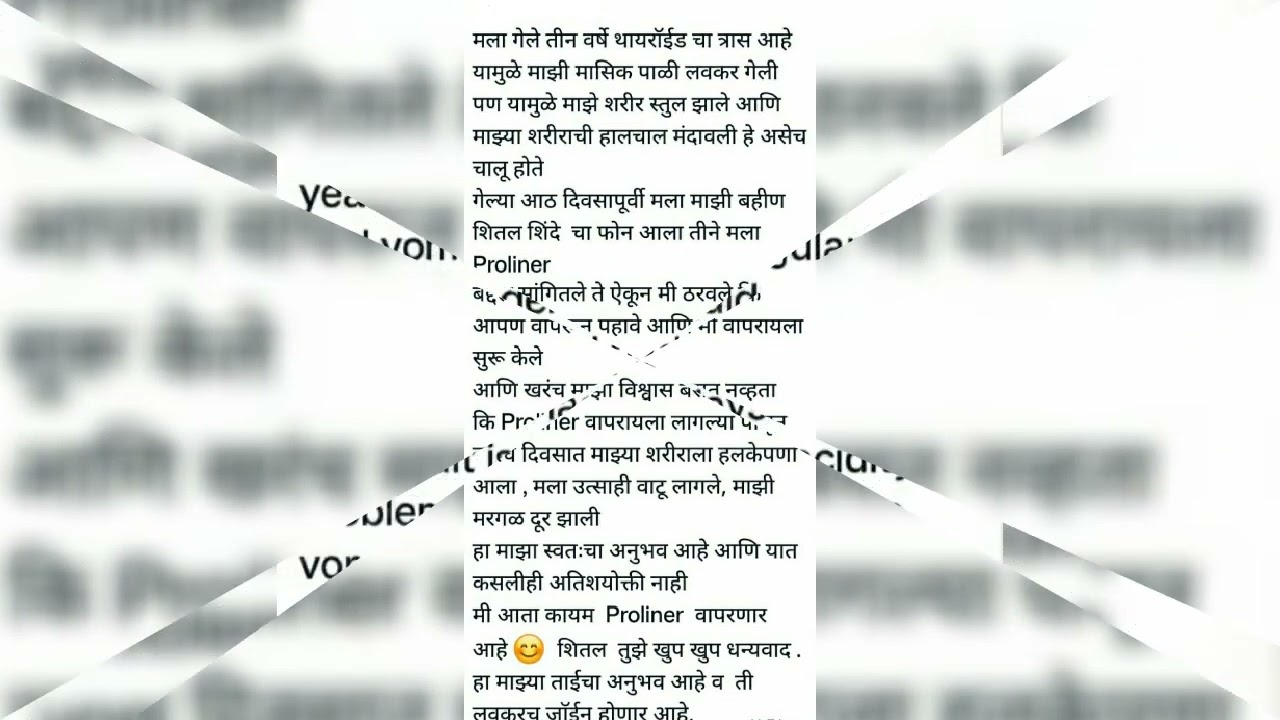 मला गेले तीन वर्षे थायरॉईड चा त्रास आहे
यामुळे माझी मासिक पाळी लवकर गेली
पण यामुळे माझे शरीर स्तुल झाले आणि
माझ्या शरीराची हालचाल मंदावली हे असेच
चालू होते
गेल्या आठ दिवसापूर्वी मला माझी बहीण
शितल शिंदे चा फोन आला तीने मला
Proliner
ते ऐकून मी ठरवले
आपण पहावे आणि वापरायला
सुरू केले
आणि खरंच माझा विश्वास बसत नव्हता
कि वापरायला लागल्या
दिवसात माझ्या शरीराला हलकेपणा
आला , मला उत्साही वाटू लागले, माझी
मरगळ दूर झाली
हा माझा स्वतःचा अनुभव आहे आणि यात
कसलीही अतिशयोक्ती नाही
मी आता कायम Proliner वापरणार
आहे 😊 शितल तुझे खुप खुप धन्यवाद .
हा माझ्या ताईचा अनुभव आहे व ती
लवकरच जॉईन होणार आहे.